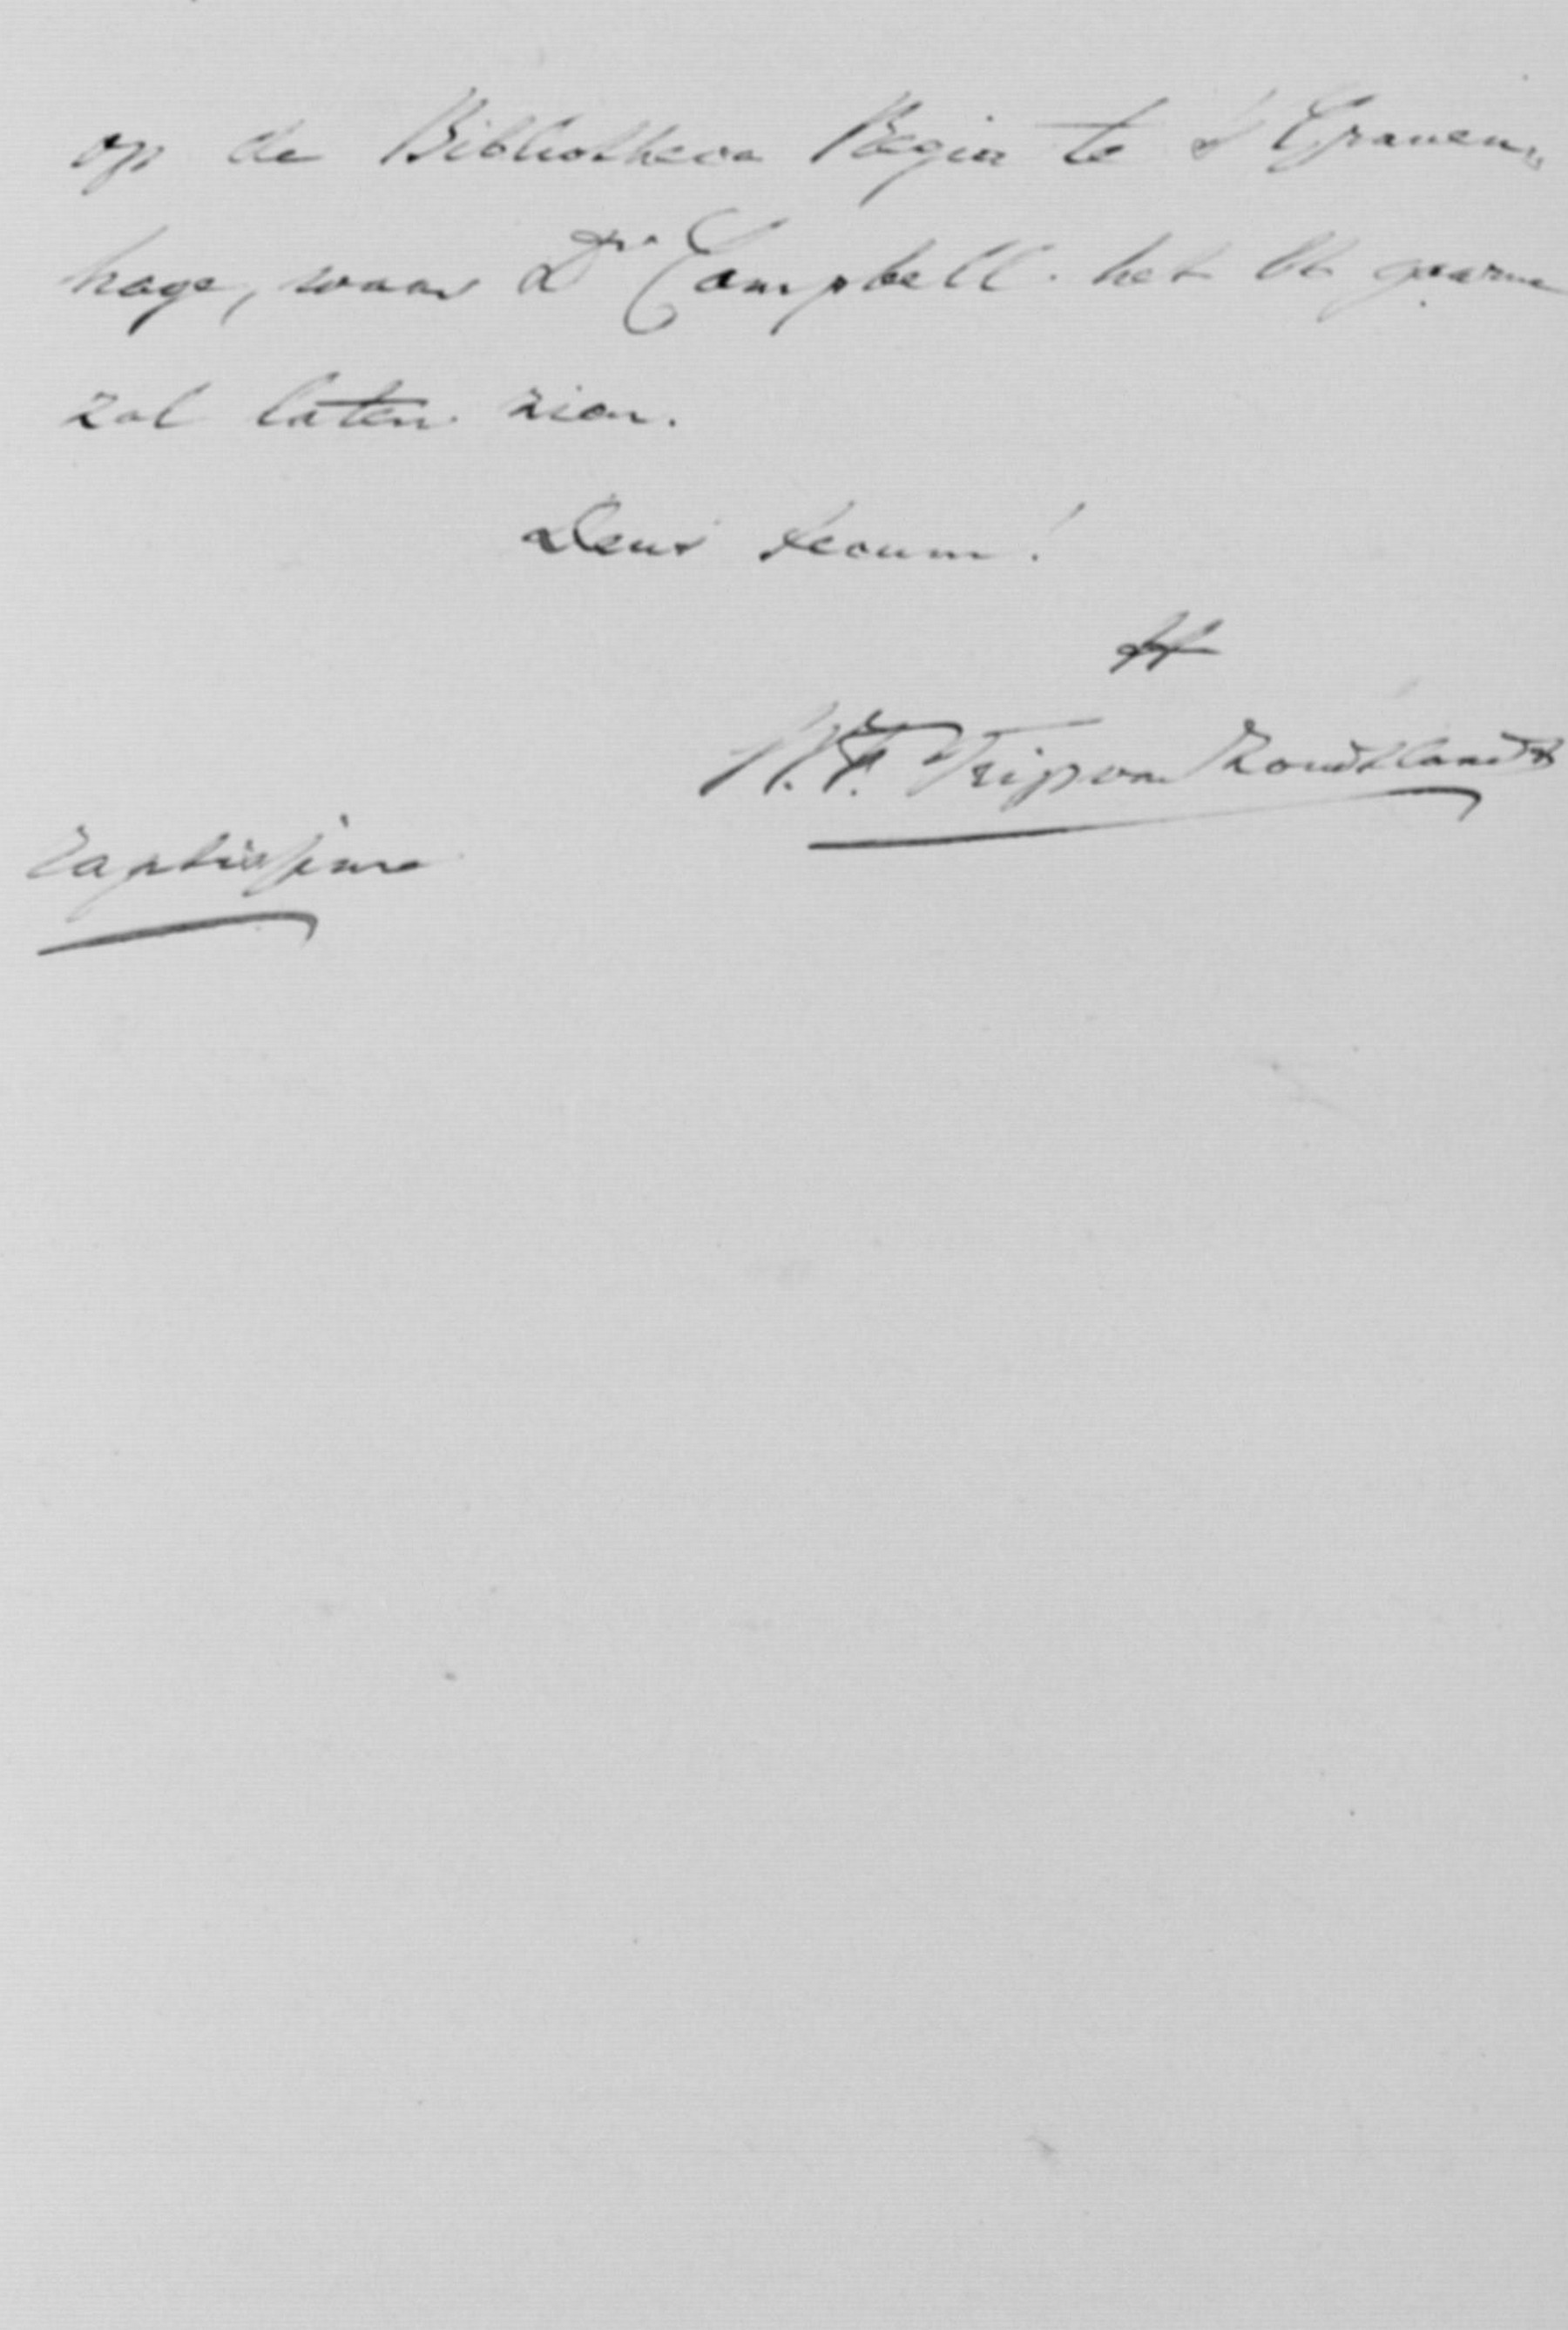 op de Bibliotheca Regia te s' Graven„
hage, waar Dr. Campbell het U gaarne
zal laten zien.
Deus tecum!
tt
N. F. Trip van Zoudtlandt
raptissime